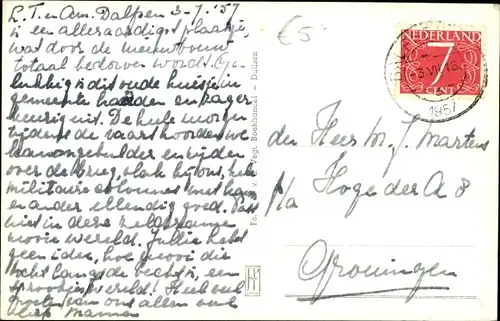 L. T. en Am. Dalfsen 3-7-'57
is een alleraardigst plaatje,
wat door de nieuwbouw
totaal bedorven wordt. Ge-
lukkig is dit oude huisje in
gemeente handen en zager
keurig uit. De hele morgen
tijdens de vaart hoorden we
kanongebulder en rijden
over de brug, vlak bij ons, hele
militaire colonnes met
en ander ellendig goed. Past
niet in deze zeldzame
mooie wereld. Jullie hebt
geen idee, hoe mooi die
tocht langs de vecht is, een
sprookjeswereld! Heel veel
groeten van ons allen ook
Mannen
€5
NEDERLAND
7
CENT
1957
den Heer M. J. Martens
p/a Hoge der A 8
Groningen
Boekhandel - Dalfsen